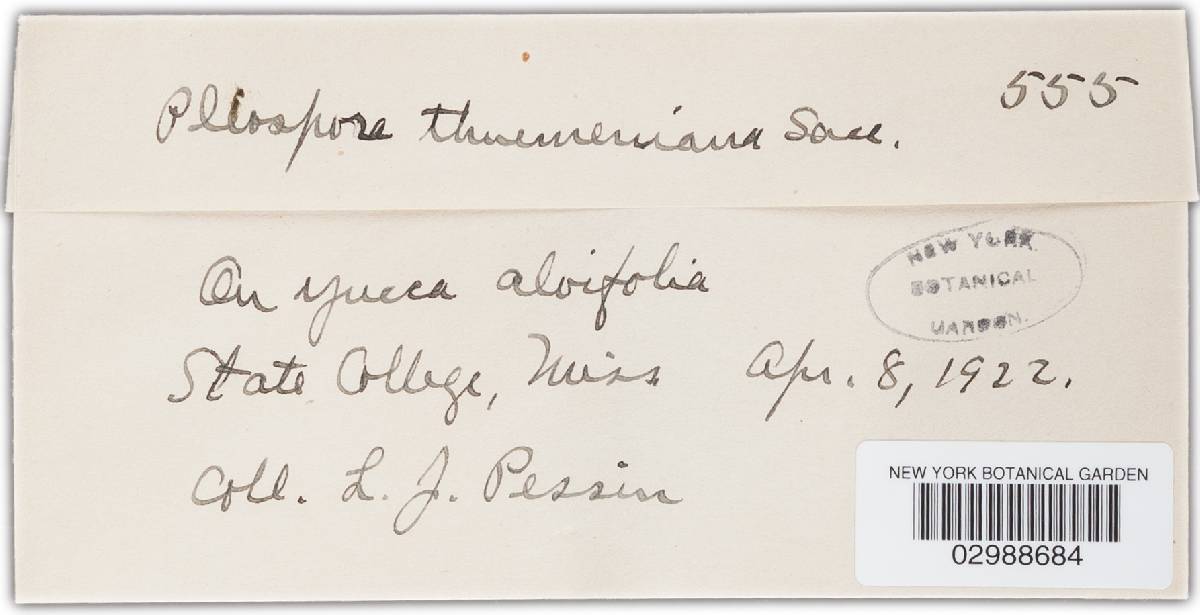 555
Pleospora thuemeniana Sacc.
On Yucca aloifolia
NEW YORK
BOTANICAL
GARDEN.
State College, Miss Apr. 8, 1922.
Coll. L. J. Pessin
NEW YORK BOTANICAL GARDEN
02988684